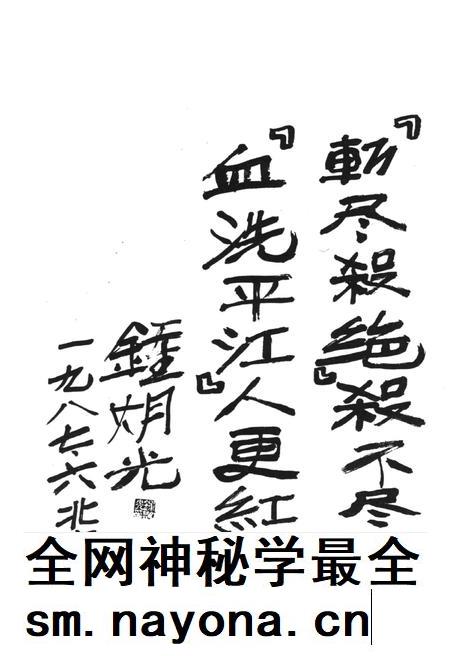 『斬尽殺絶』殺不尽
『血洗平江』人更紅
鍾期光
一九八七.六北
全网神秘学最全
sm.nayona.cn